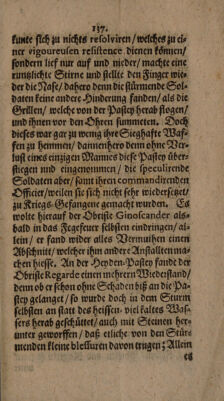 137.
kunte sich zu nichts resolviren / welches zu ei-
ner vigoureusen resistence dienen können /
sondern lief nur auf und nieder / machte eine
runtzlichte Stirne und stellte den Finger wie-
der die Nase / dahero denn die stürmende Sol-
daten keine andere Hinderung fanden / als die
Grillen / welche von der Pastey herab flogen /
und ihnen vor den Ohren summeten. Doch
dieses war gar zu wenig ihre Sieghaffte Waf-
fen zu hemmen / dannenhero denn ohne Ver-
lust eines einzigen Mannes diese Pastey über-
stiegen und eingenommen / die speculirende
Soldaten aber / samt ihrem commandirenden
Officier / weilen sie sich nicht sehr wiedersetzet /
zu Kriegs-Gefangene gemacht wurden. Es
wolte hierauf der Obriste Ginoscander als-
bald in das Fegefeuer selbsten eindringen / al-
lein / er fand wider alles Vermuthen einen
Abschnitt / welcher ihm andere Anstallten ma-
chen hiesse. An der Heyden-Pastey fande der
Obriste Regarde einen mehrern Wiederstand /
denn ob er schon ohne Schaden biß an die Pa-
stey gelanget / so wurde doch in dem Sturm
selbsten an statt des heissen, viel kaltes Was-
sers herab geschüttet / auch mit Steinen her-
unter geworffen / daß etliche von den Stür-
menden kleine blessuren davon trugen; Allein
es